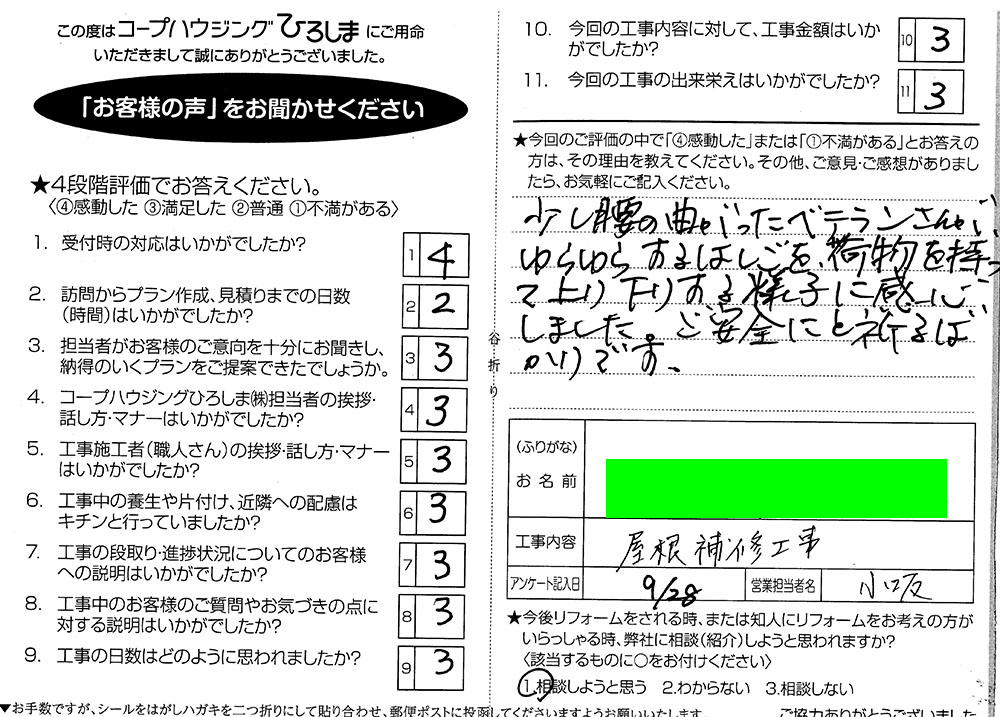 この度はコープハウジングひろしまにご用命
いただきまして誠にありがとうございました。
「お客様の声」をお聞かせください
★4段階評価でお答えください。
〈④感動した ③満足した ②普通 ①不満がある〉
1. 受付時の対応はいかがでしたか?
1 4
2. 訪問からプラン作成、見積りまでの日数
(時間)はいかがでしたか?
2 2
3. 担当者がお客様のご意向を十分にお聞きし、
納得のいくプランをご提案できたでしょうか。
3 3
4. コープハウジングひろしま㈱担当者の挨拶・
話し方・マナーはいかがでしたか?
4 3
5. 工事施工者(職人さん)の挨拶・話し方・マナー
はいかがでしたか?
5 3
6. 工事中の養生や片付け、近隣への配慮は
キチンと行っていましたか?
6 3
7. 工事の段取り・進捗状況についてのお客様
への説明はいかがでしたか?
7 3
8. 工事中のお客様のご質問やお気づきの点に
対する説明はいかがでしたか?
8 3
9. 工事の日数はどのように思われましたか?
9 3
▼お手数ですが、シールをはがしハガキを二つ折りにして貼り合わせ、郵便ポストに投函してくださいますようお願いいたします。
谷折り
10. 今回の工事内容に対して、工事金額はいか
がでしたか?
10 3
11. 今回の工事の出来栄えはいかがでしたか?
11 3
★今回のご評価の中で「④感動した」または「①不満がある」とお答えの
方は、その理由を教えてください。その他、ご意見・ご感想がありまし
たら、お気軽にご記入ください。
少し腰の曲がったベテランさんが
ゆらゆらするはしごを、荷物を持っ
て上り下りする様子に感心
しました。ご安全にと祈るば
かりです。
(ふりがな)
お名前
工事内容 屋根補修工事
アンケート記入日 9/28 営業担当者名 小坂
★今後リフォームをされる時、または知人にリフォームをお考えの方が
いらっしゃる時、弊社に相談(紹介)しようと思われますか?
〈該当するものに○をお付けください〉
1.相談しようと思う 2.わからない 3.相談しない
ご協力ありがとうございました